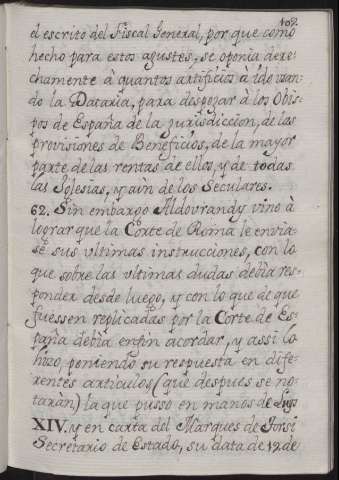 109.
el escrito del Fiscal General, por que como
hecho para estos ajustes, se oponia dere-
chamente à quantos artificios à ido usan-
do la Dataria, para despojar à los Obis-
pos de España de la jurisdiccion, de las
provisiones de Beneficios, de la mayor
parte de las rentas de ellos, y de todas
las Iglesias, y aùn de los Seculares.
62. Sin embargo Aldovrandy vino à
lograr que la Corte de Roma le envia-
sê sus vltimas instrucciones, con lo
que sobre las vltimas dudas debia res-
ponder desde luego, y con lo que de que
fuessen replicadas por la Corte de Es-
paña debia enfin acordar, y assi lo
hizo, poniendo su respuesta en dife-
rentes articulos (que despues se no-
taràn) la que pusso en manos de Luis
XIV. y en carta del Marques de Torsi
Secretario de Estado, su data de 12. de